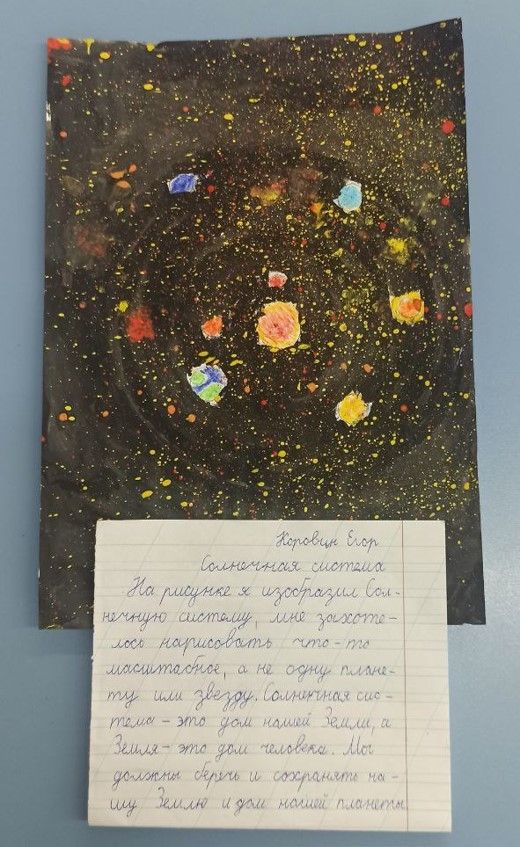 Коровин Егор
Солнечная система
На рисунке я изобразил Сол-
нечную систему, мне захоте-
лось нарисовать что-то
масштабное, а не одну плане-
ту или звезду. Солнечная сис-
тема - это дом нашей Земли, а
Земля - это дом человека. Мы
должны беречь и сохранять на-
шу Землю и дом нашей планеты